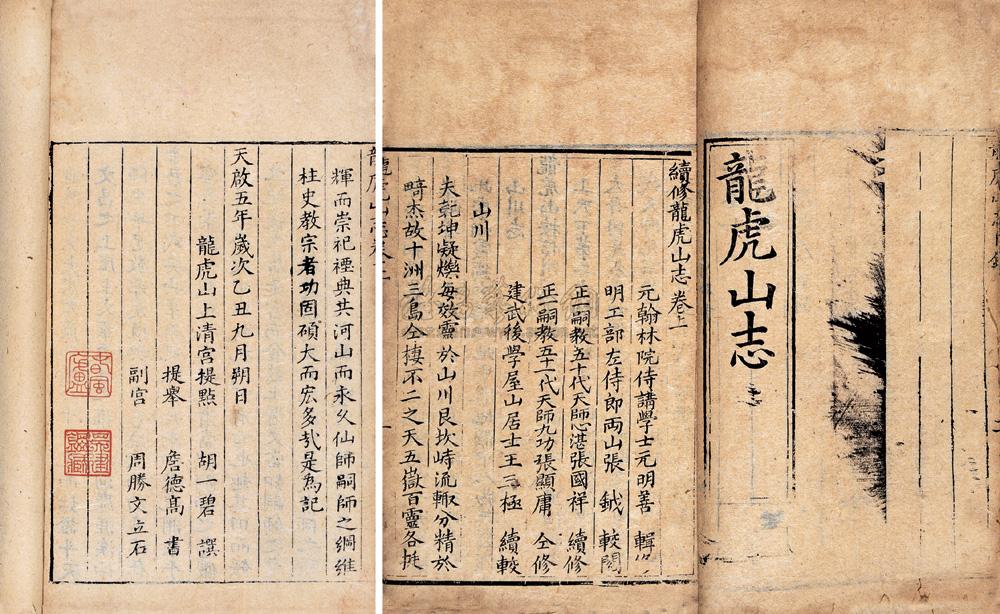 龍虎山志
續修龍虎山志卷上
元翰林院侍講學士元明善 輯
明工部左侍郎両山張 鉞 較閱
正一嗣教五十代天師心湛張國祥 續修
正一嗣教五十一代天師九功張顯庸 仝修
建武後學屋山居士王三極 續較
山川
夫乾坤凝爍每效靈於山川艮坎峙流輙分精於
畸杰故十洲三島仝棲不二之天五嶽百靈各
輝而崇祀禋典共河山而永久仙師嗣師之綱維
柱史教宗者功固碩大而宏多哉是為記
天啟五年歲次乙丑九月朔日
龍虎山上清宮提點 胡一碧 譔
提舉 詹德髙 書
副宮 周勝文立石